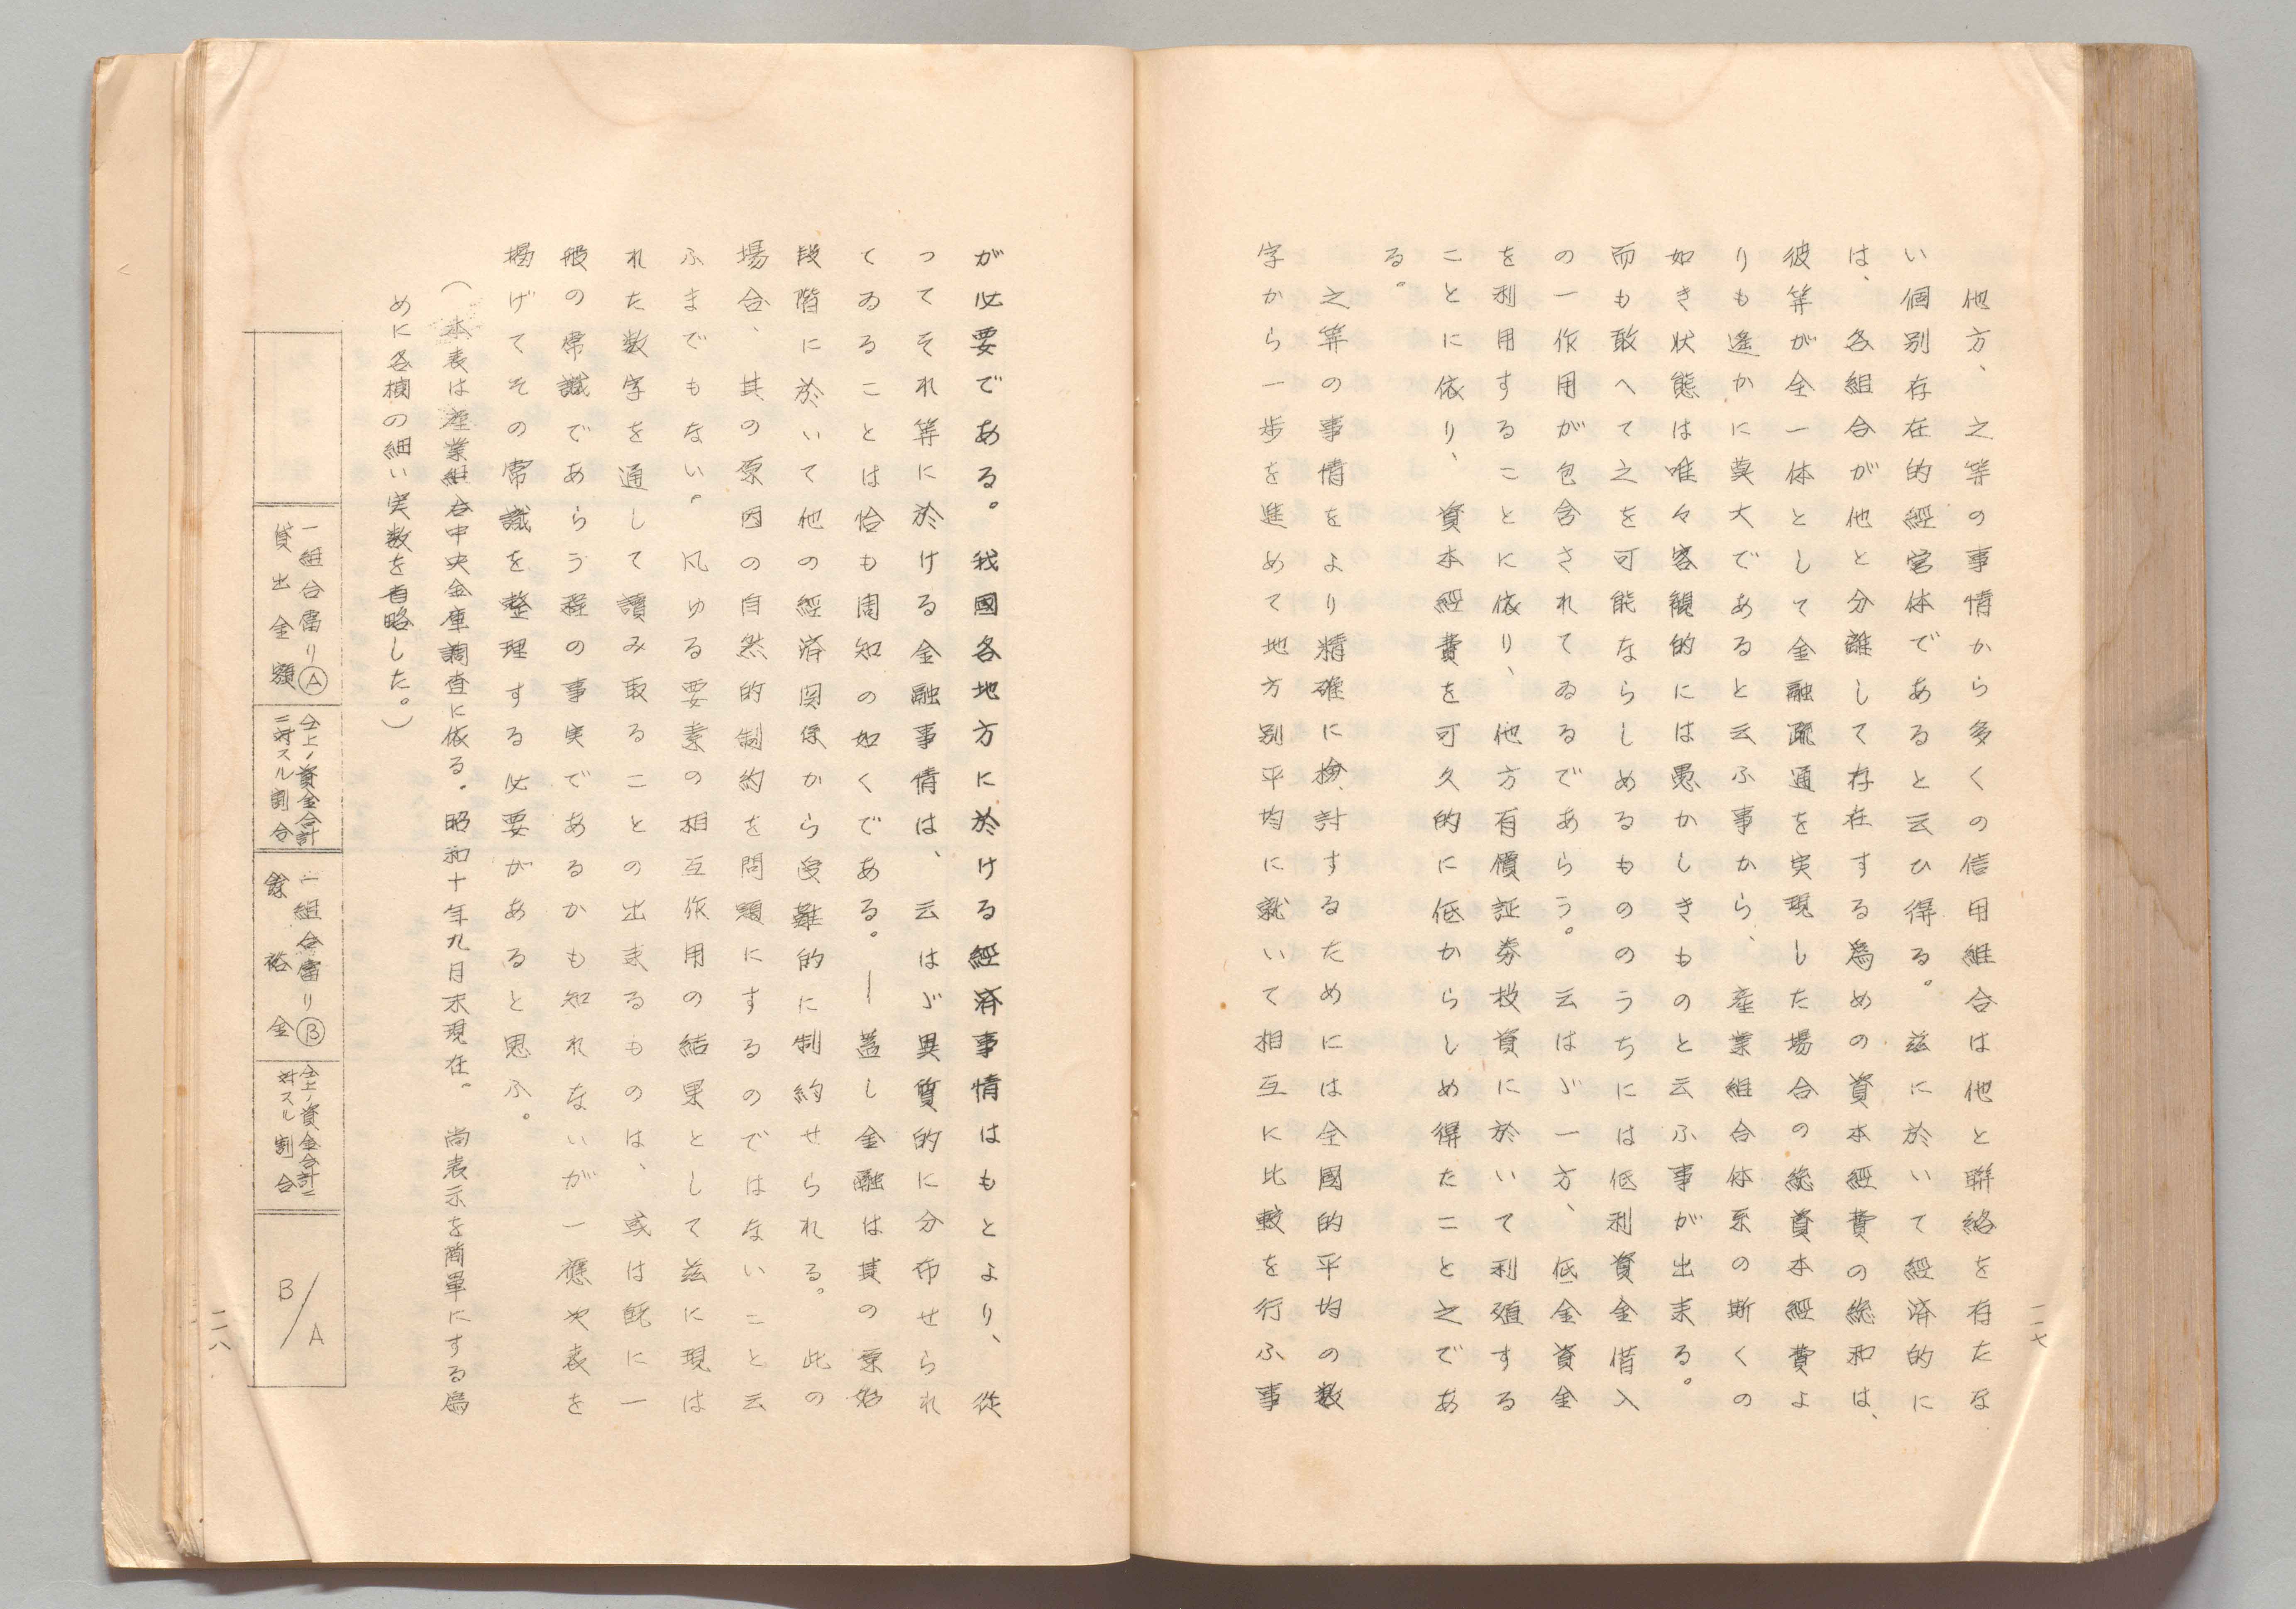 他方、之等の事情から多くの信用組合は他と聯絡を存たな
い個別存在的經営体であると云ひ得る。茲に於いて經済的に
は、各組合が他と分離して存在する爲めの資本經費の総和は、
彼等が全一体として金融疏通を実現した場合の総資本經費よ
りも遙かに莫大であると云ふ事から、産業組合体系の斯くの
如き状態は唯々客観的には愚かしきものと云ふ事が出来る。
而も敢へて之を可能ならしめるもののうちには低利資金借入
の一作用が包含されてゐるであらう。云はゞ一方、低金資金
を利用することに依り、他方有價証券投資に於いて利殖する
ことに依り、資本經費を可久的に低からしめ得たこと之であ
る。
之等の事情をより精確に検討するためには全國的平均の数
字から一歩を進めて地方別平均に就いて相互に比較を行ふ事
一一七
が必要である。我國各地方に於ける經済事情はもとより、從
つてそれ等に於ける金融事情は、云はゞ異質的に分布せられ
てゐることは恰も周知の如くである。—蓋し金融は其の原始
段階に於いて他の經済関係から受難的に制約せられる。此の
場合、其の原因の自然的制約を問題にするのではないこと云
ふまでもない。凡ゆる要素の相互作用の結果として茲に現は
れた数字を通して讀み取ることの出来るものは、或は既に一
般の常識であらう程の事実であるかも知れないが一應次表を
掲げてその常識を整理する必要があると思ふ。
（本表は産業組合中央金庫調査に依る。昭和十年九月末現在。尚表示を簡單にする爲
めに各欄の細い実数を省略した。）
一組合當りⒶ
貸出金額
仝上ノ資金合計
ニ対スル割合
一組合當りⒷ
餘裕金
仝上ノ資金合計ニ
対スル割合
B/A
一一八